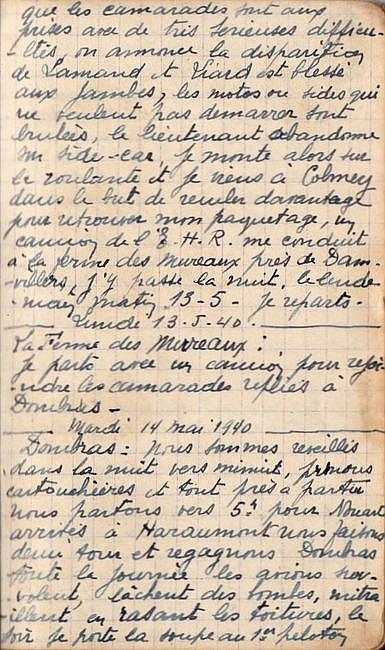 que les camarades sont aux
prises avec de très serieuses difficul-
-ltés, on annonce la disparition
de Lamand et Liard est blessé
aux jambes, les motos ou sides qui
ne veulent pas demarrer sont
brulées, le lieutenant abandonne
son side-car, je monte alors sur
la roulante et je viens à Colmey
dans le but de reculer davantage
pour retrouver mon paquetage, un
camion de l'E.H.R. me conduit
à la ferme des Mureaux près de Dam-
-villers, j'y passe la nuit, le lende-
-main matin 13-5- je repars.
Lundi 13-5-40.
La Ferme des Mureaux:
Je pars avec un camion pour rejoi-
-ndre les camarades repliés à
Dombras-
Mardi 14 mai 1940
Dombras: nous sommes reveillés
dans la nuit vers minuit, prenons
cartouchières et tout près à partir
nous partons vers 5h pour Nouart
arrivés à Haraumont nous faisons
demi tour et regagnons Dombras
toute la journée les avions sur-
-volent, lâchent des bombes, mitra
-illent en rasant les toitures, le
soir je porte la soupe au 1er peloton